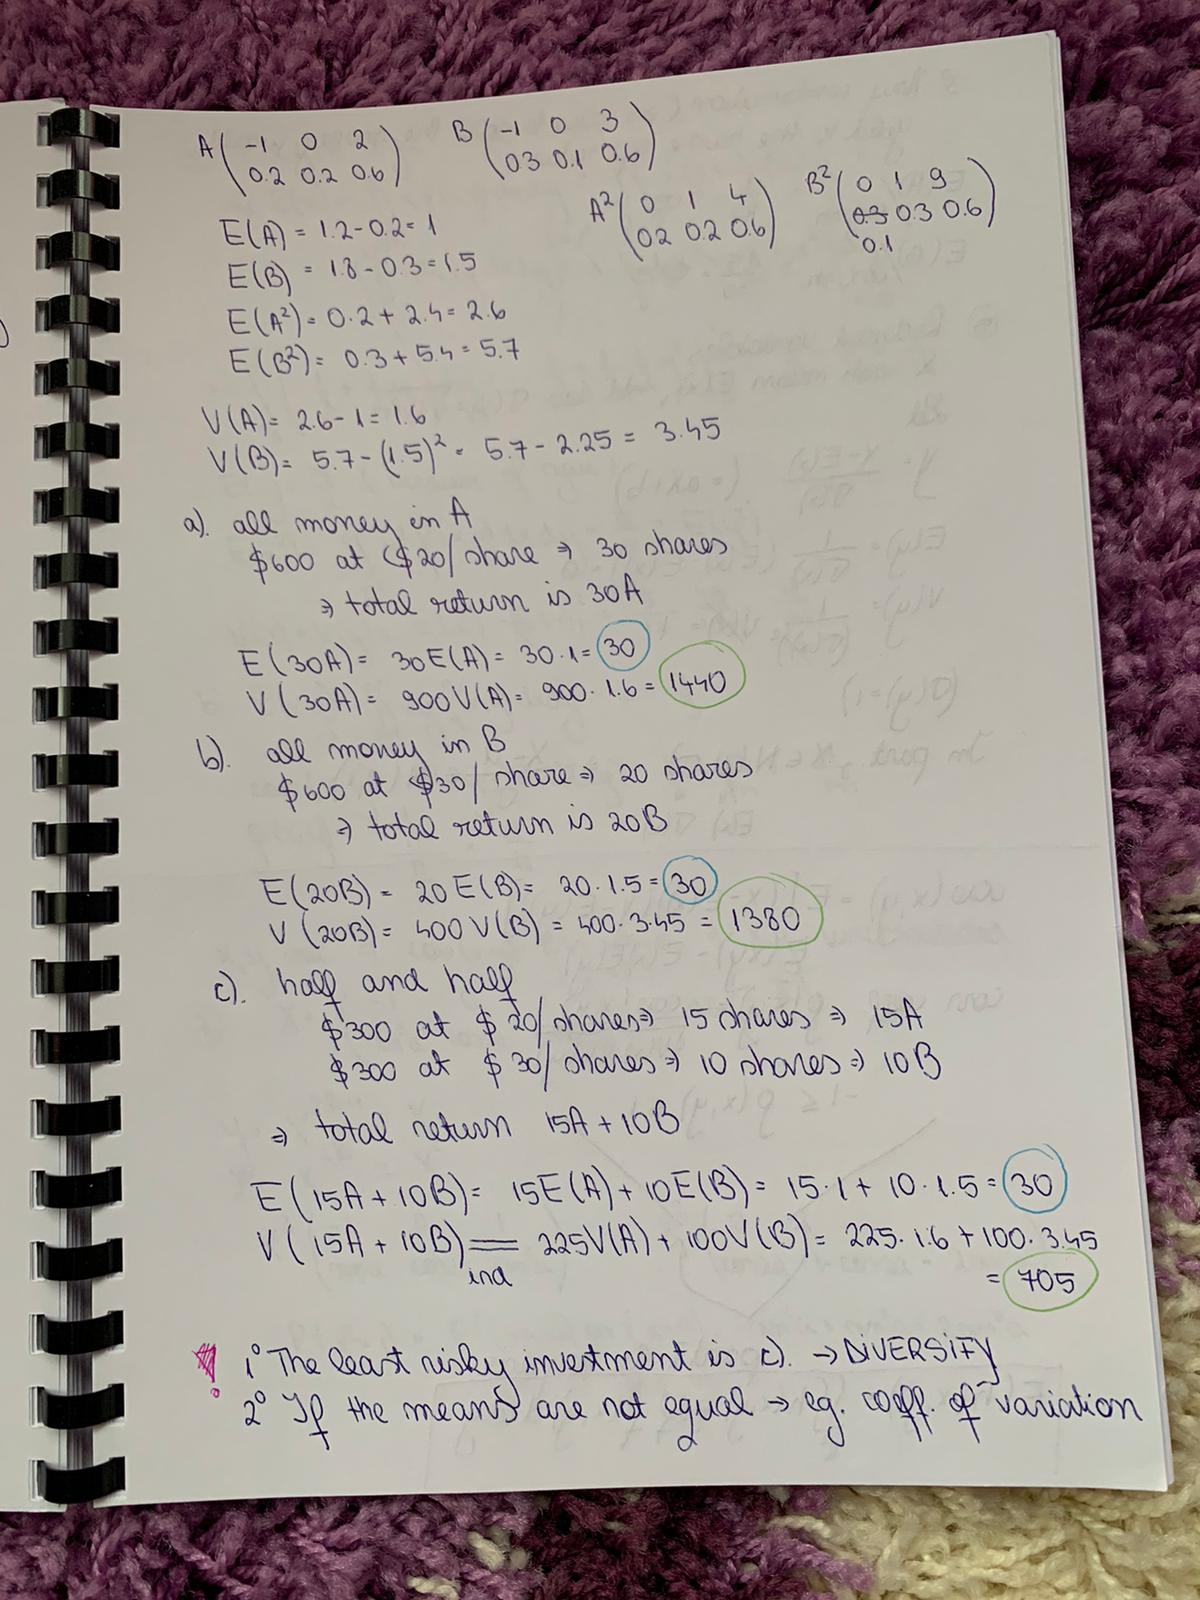 A ( -1 0 2
0.2 0.2 0.6 )
B ( -1 0 3
0.3 0.1 0.6 )
A² ( 0 1 4
0.2 0.2 0.6 )
B² ( 0 1 9
0.3 0.3 0.6 )
0.1
E(A) = 1.2 - 0.2 = 1
E(B) = 1.8 - 0.3 = 1.5
E(A²) = 0.2 + 2.4 = 2.6
E(B²) = 0.3 + 5.4 = 5.7
V(A) = 2.6 - 1 = 1.6
V(B) = 5.7 - (1.5)² = 5.7 - 2.25 = 3.45
a). all money in A
$600 at $20/share ⇒ 30 shares
⇒ total return is 30A
E(30A) = 30E(A) = 30·1 = 30
V(30A) = 900V(A) = 900·1.6 = 1440
b). all money in B
$600 at $30/share ⇒ 20 shares
⇒ total return is 20B
E(20B) = 20E(B) = 20·1.5 = 30
V(20B) = 400V(B) = 400·3.45 = 1380
c). half and half
$300 at $20/shares ⇒ 15 shares ⇒ 15A
$300 at $30/shares ⇒ 10 shares ⇒ 10B
⇒ total return 15A + 10B
E(15A + 10B) = 15E(A) + 10E(B) = 15·1 + 10·1.5 = 30
V(15A + 10B) = 225V(A) + 100V(B) = 225·1.6 + 100·3.45
ind
= 705
! 1° The least risky investment is c). → DIVERSIFY
2° If the means are not equal → eg. coeff. of variation